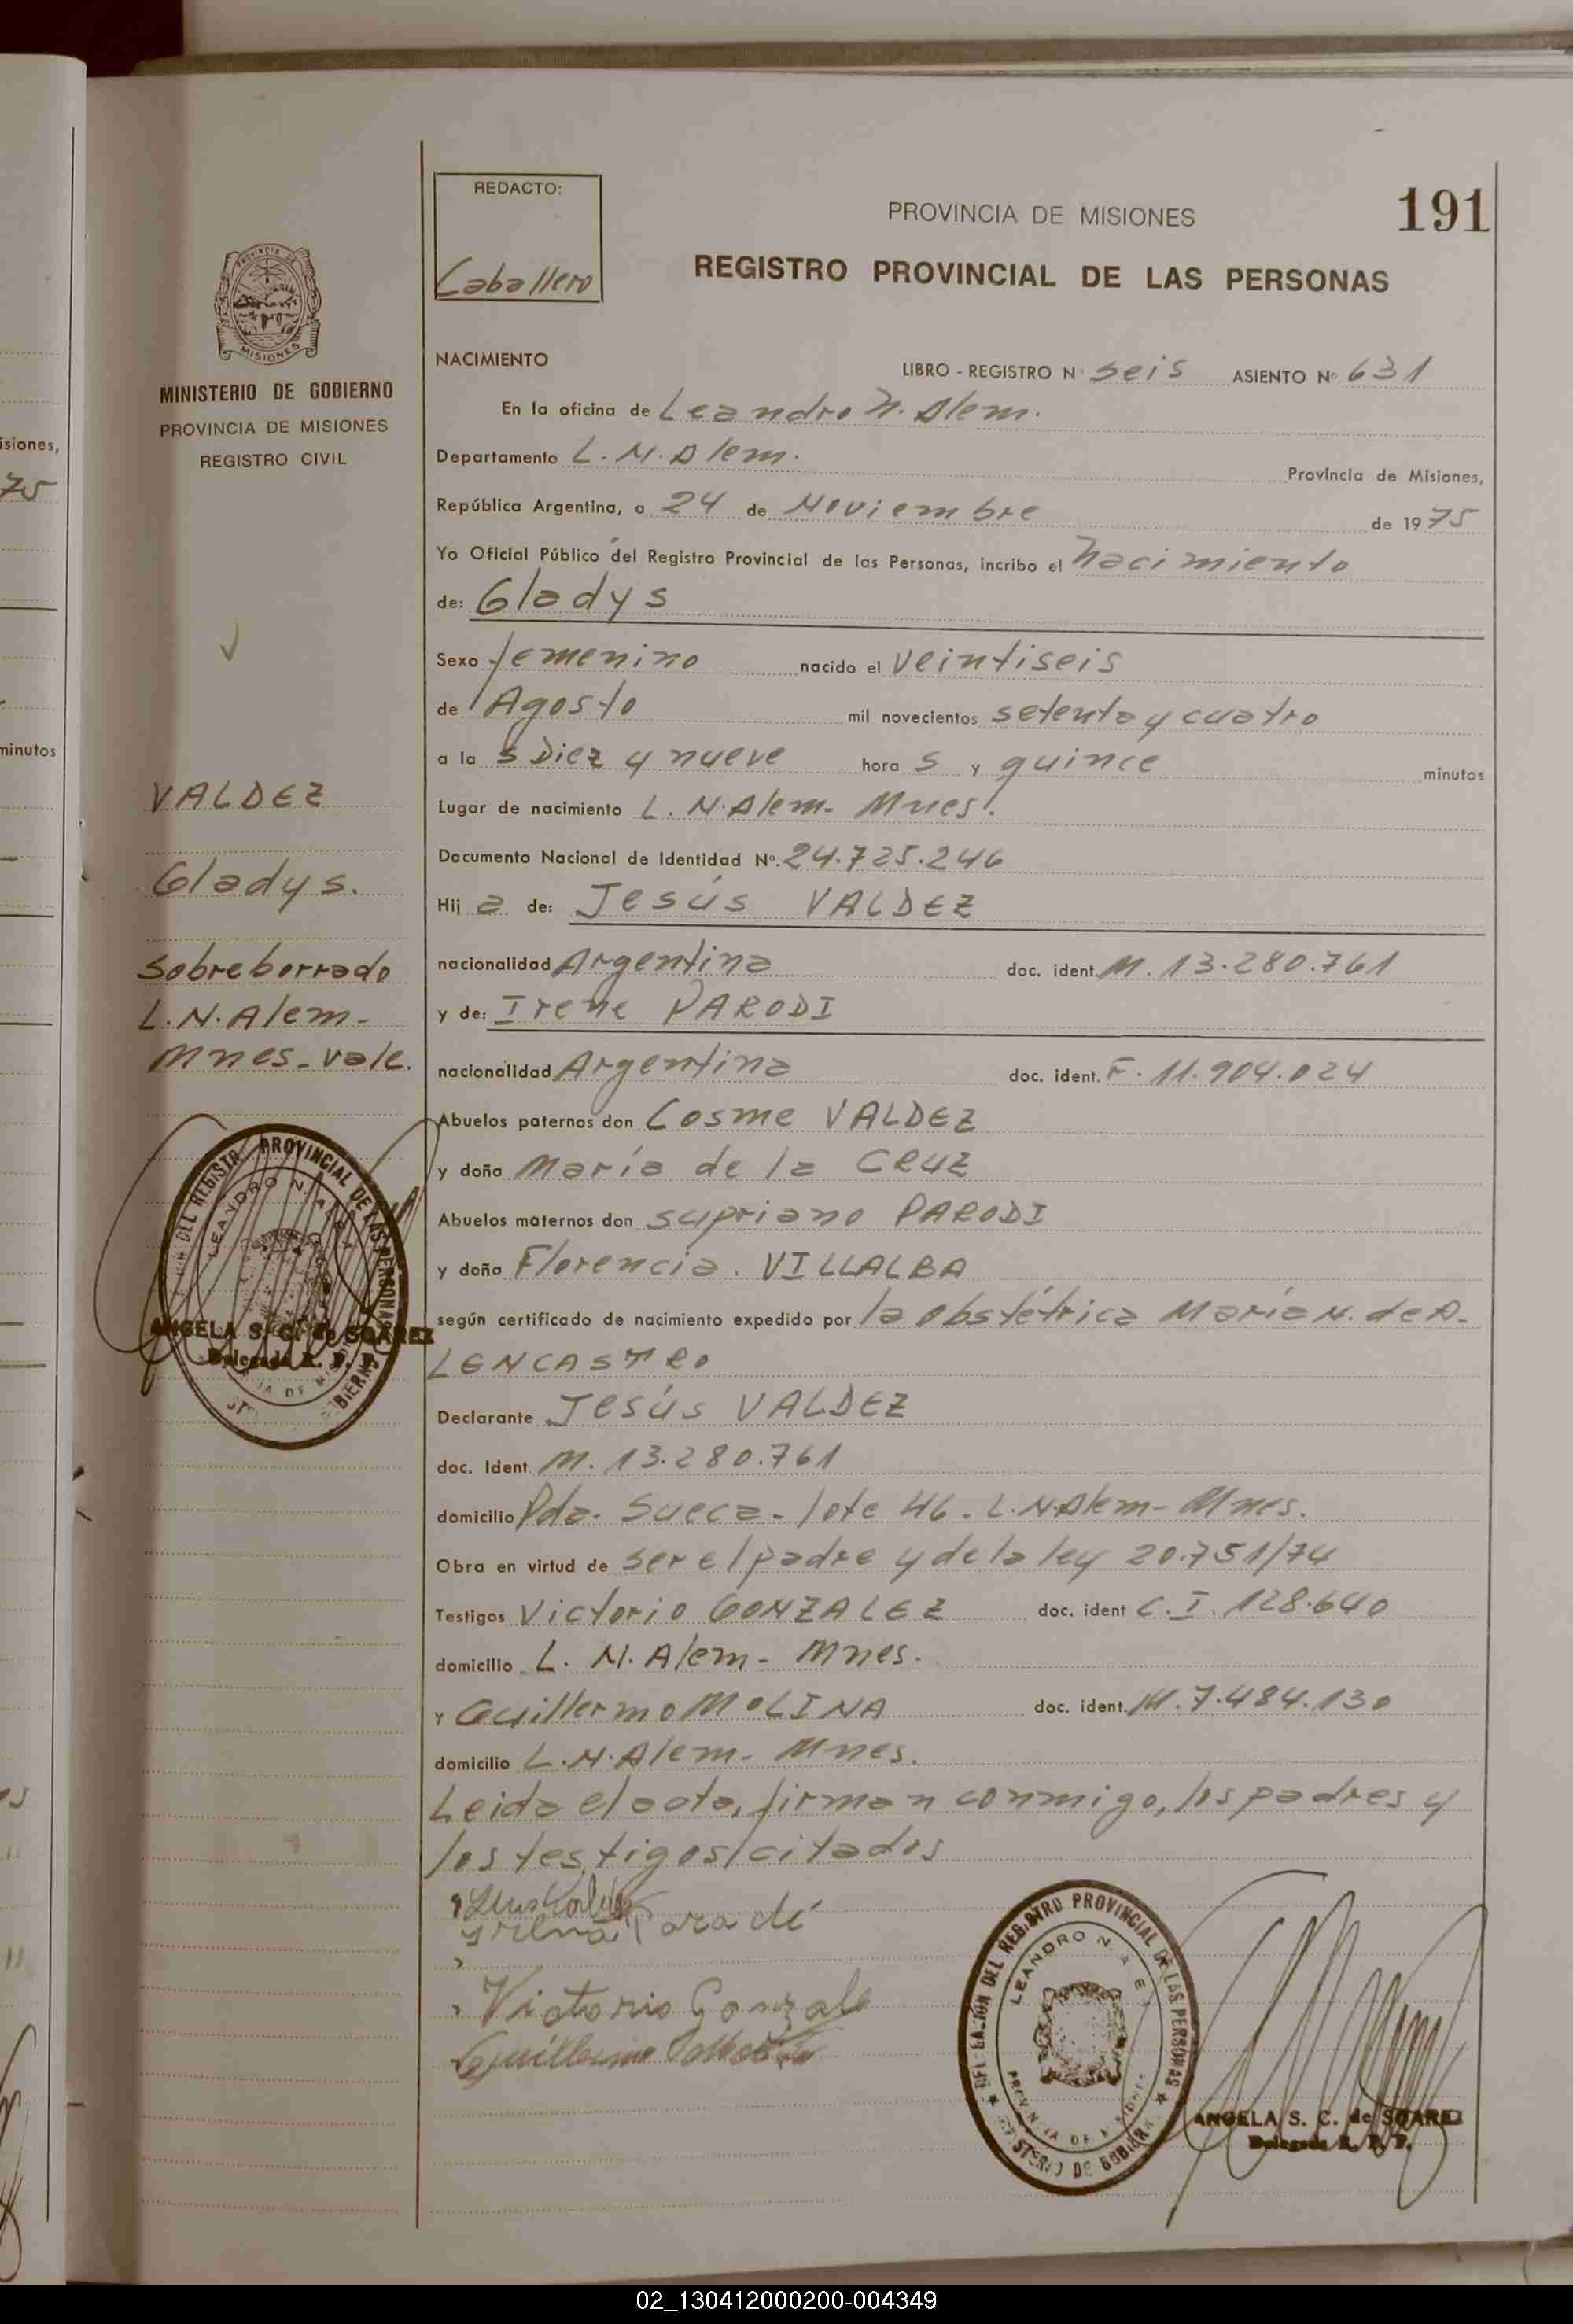 REDACTO:
Caballero
PROVINCIA DE MISIONES
191
REGISTRO PROVINCIAL DE LAS PERSONAS
PROVINCIA DE
MISIONES
MINISTERIO DE GOBIERNO
PROVINCIA DE MISIONES
REGISTRO CIVIL
isiones,
75
minutos
NACIMIENTO
LIBRO - REGISTRO N seis ASIENTO Nº 631
En la oficina de Leandro N. Alem.
Departamento L. N. Alem. Provincia de Misiones,
República Argentina, a 24 de Noviembre de 1975
Yo Oficial Público del Registro Provincial de las Personas, incribo el nacimiento
de: Gladys
Sexo femenino nacido el veintiseis
de Agosto mil novecientos setenta y cuatro
a la s Diez y nueve hora s y quince minutos
Lugar de nacimiento L. N. Alem - Mnes.
Documento Nacional de Identidad Nº. 24.725.246
Hij a de: Jesús VALDEZ
nacionalidad Argentina doc. ident. M. 13.280.761
y de: Irene PARODI
nacionalidad Argentina doc. ident. F. 11.904.024
Abuelos paternos don Cosme VALDEZ
y doña María de la CRUZ
Abuelos maternos don supriano PARODI
y doña Florencia. VILLALBA
según certificado de nacimiento expedido por la obstétrica María N. de A.
LENCASTRO
Declarante Jesús VALDEZ
doc. Ident. M. 13.280.761
domicilio Pda. Sueca - lote 46 - L.N.Alem - Mnes.
Obra en virtud de ser el padre y de la ley 20.751/74
Testigos Victorio GONZALEZ doc. ident C.I. 128.640
domicilio L. N. Alem - Mnes.
y Guillermo MOLINA doc. ident. M. 7.484.130
domicilio L.N.Alem - Mnes.
Leida el acta, firman conmigo, los padres y
los testigos citados
VALDEZ
Gladys.
sobreborrado
L.N.Alem -
Mnes - vale.
DEL REGISTR PROVINCIAL DE LAS PERSONAS
LEANDRO N. ALEM
ANGELA S. C. de SOAREZ
Delegada R. P. P.
Victorio Gonzale
Guillermo
DELEGACION DEL REGISTRO PROVINCIAL DE LAS PERSONAS
LEANDRO N. ALEM
PROVINCIA DE MISIONES
MINISTERIO DE GOBIERNO
ANGELA S. C. de SOAREZ
Delegada R. P. P.
02_130412000200-004349